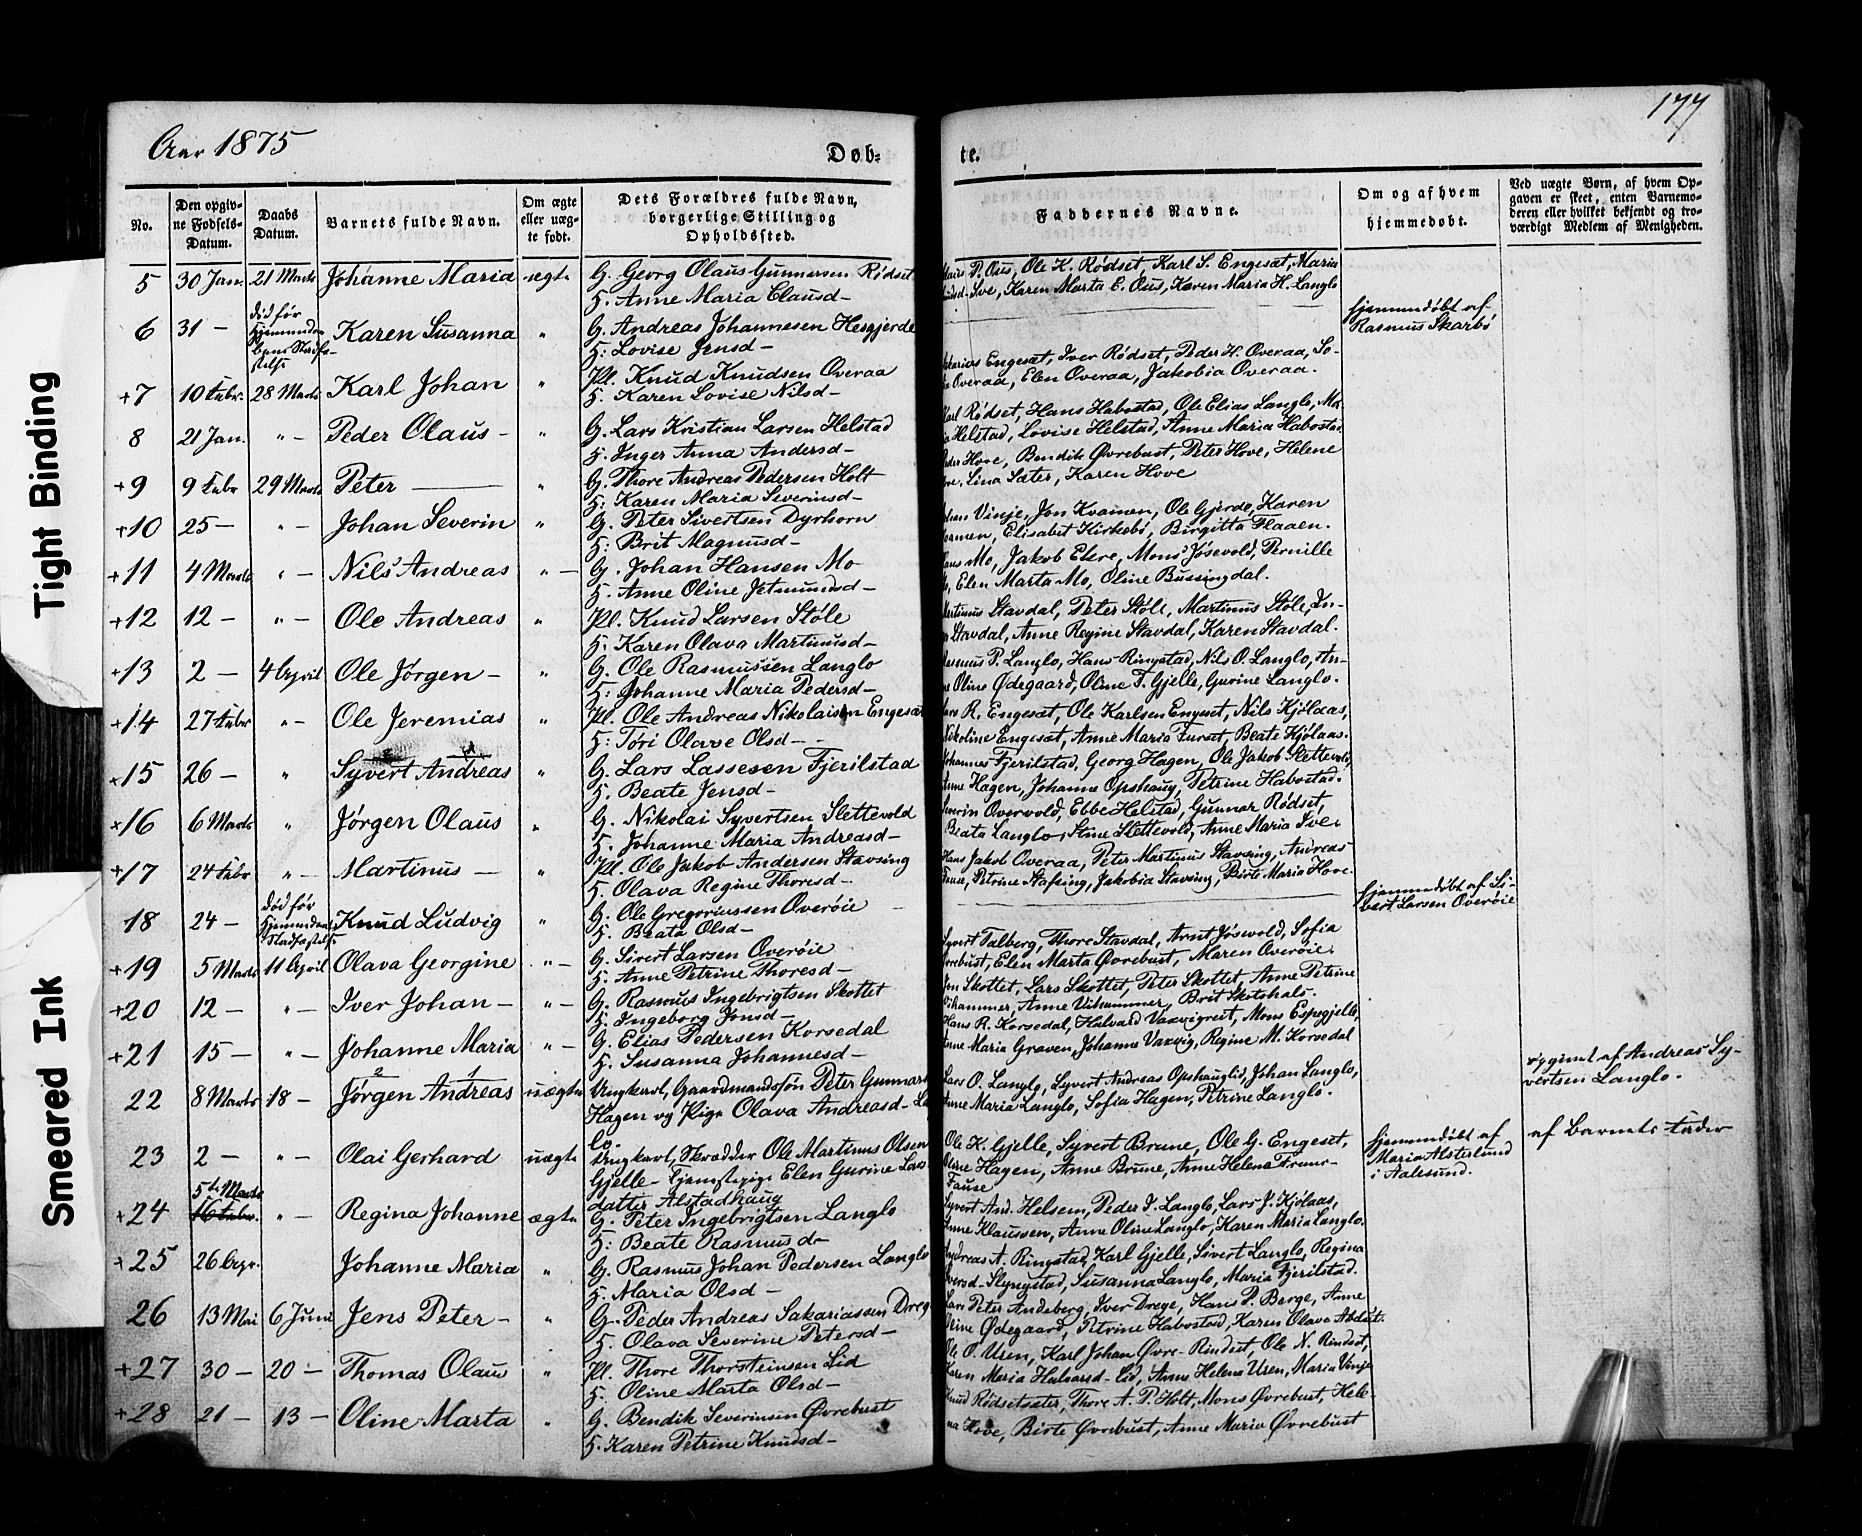 Aar 1875
Døb=
te.
177
Tight Binding
Smeared Ink
No.
Den opgiv-
ne Fødsels-
Datum.
Daabs
Datum.
Barnets fulde Navn.
Om ægte
eller uæg-
te født.
Dets Forældres fulde Navn,
borgerlige Stilling og
Opholdssted.
Faddernes Navne.
Om og af hvem
hjemmedøbt.
Ved uægte Børn, af hvem Op-
gaven er skeet, enten Barnemo-
deren eller hvilket bekjendt og tro-
værdigt Medlem af Menigheden.
5 30 Jan. 21 Marts Johanne Maria ægte G. Georg Olaus Gunnarsen Rødset
H. Anne Maria Clausd-
P. Ous, Ole K. Rødset, Karl S. Engesæt, Maria
Ive, Karen Marta E. Ous, Karen Maria H. Langlo
6 31 - død før Karen Susanna " G. Andreas Johannesen Hesgjerde
H: Lovise Jensd-
hjemmedøbt af
Rasmus Skarbø
+7 10 Febr. 28 Marts Karl Johan " Pl. Knud Knudsen Overaa
H. Karen Lovise Nilsd-
Engesæt, Iver Rødset, Peder H. Overaa, So-
Overaa, Elen Overaa, Jakobia Overaa.
8 21 Jan. " - Peder Olaus - " G. Lars Kristian Larsen Helstad
H. Inger Anna Andersd-
Rødset, Hans Habostad, Ole Elias Langlo, Mar-
Helstad, Lovise Helstad, Anne Maria Habostad
+9 9 Febr 29 Marts Peter " G. Thore Andreas Pedersen Holt
H: Karen Maria Severinsd-
Hove, Bendik Øvrebust, Peter Hove, Helene
Lina Sæter, Karen Hove
+10 25 - " - Johan Severin " G. Peter Sivertsen Dyrhorn
H: Brit Magnusd-
Vinje, Jon Kvamen, Ole Gjerde, Karen
Elisabet Kirkebø, Birgitta Flaaen.
+11 4 Marts " - Nils Andreas " - G. Johan Hansen Mo
H. Anne Oline Jetmundsd-
Mo, Jakob Ekre, Mons Jøsevold, Pernille
Elen Marta Mo, Oline Bussingdal.
+12 12 - " - Ole Andreas " Pl. Knud Larsen Støle
H: Karen Olava Martinusd-
Martinus Stavdal, Peter Støle, Martinus Støle, In-
Stavdal, Anne Regine Stavdal, Karen Stavdal.
+13 2 - 4 April Ole Jørgen - " G. Ole Rasmussen Langlo
H: Johanne Maria Pedersd-
Rasmus P. Langlo, Hans Ringstad, Nils O. Langlo, An-
Oline Ødegaard, Oline T. Gjelle, Gurine Langlo.
+14 27 Febr " - Ole Jeremias " Pl. Ole Andreas Nikolaisen Engesæt
H: Tøri Olave Olsd-
R. Engesæt, Ole Karlsen Engeset, Nils Kjølaas,
Nikoline Engesæt, Anne Maria Furset, Beate Kjølaas.
+15 26 - " Syvert Andreas " G. Lars Lassesen Fjerilstad
H. Beate Jensd-
Johannes Fjerilstad, Georg Hagen, Ole Jakob Slettevold,
Anne Hagen, Johanne Opshaug, Petrine Habostad.
+16 6 Marts " Jørgen Olaus " G. Nikolai Syvertsen Slettevold
H. Johanne Maria Andreasd-
Severin Overvold, Ebbe Helstad, Gunnar Rødset,
Beata Langlo, Stine Slettevold, Anne Maria Ive.
+17 24 Febr " - Martinus - " Pl. Ole Jakob Andersen Stavsing
H. Olava Regine Thoresd-
Hans Jakob Overaa, Peter Martinus Stavsing, Andreas
Petrine Stafsing, Jakobia Stavsing, Birte Maria Hove
18 24 - død før Knud Ludvig " G. Ole Gregoriussen Overøie
H. Beata Olsd-
hjemmedøbt af Si-
vert Larsen Overøie
+19 5 Marts 11 April Olava Georgine " - G. Sivert Larsen Overøie
H: Anne Petrine Thoresd-
Syvert Talberg, Thore Stavdal, Arnt Jøsevold, Sofia
Øvrebust, Elen Marta Øvrebust, Maren Overøie
+20 12 - " - Iver Johan - " - G. Rasmus Ingebrigtsen Skottet
H: Ingeborg Jonsd-
Jon Skottet, Lars Skottet, Peter Skottet, Anne Petrine
Vihammer, Anne Vihammer, Brit Skitshals.
+21 15 - " - Johanne Maria " - G. Elias Pedersen Korsedal
H. Susanna Johannesd-
Hans R. Korsedal, Halvard Vaxvigreit, Mons Espegjelle,
Anne Maria Graven, Johanne Vaxvig, Regine M. Korsedal
22 8 Marts 18 - Jørgen Andreas uægte Ungkarl, Gaardmandssøn Peter Gunnars
Hagen og Pige Olava Andreasd- La
lo.
Lars O. Langlo, Syvert Andreas Opshauglid, Johan Langlo,
Anne Maria Langlo, Sofia Hagen, Petrine Langlo.
opgivet af Andreas Sy-
vertsen Langlo.
23 2 - " - Olai Gerhard uægte Ungkarl, Skrædder Ole Martinus Olsen
Gjelle - Tjenestepige Elen Gurine Lars-
datter Alstadhaug
Ole K. Gjelle, Syvert Brune, Ole G. Engeset,
Oline Hagen, Anne Brune, Anne Helena
Fause
hjemmedøbt af
Maria Alsterlund
i Aalesund.
af Barnets Fader
+24 5te Marts 16 Febr. " - Regina Johanne ægte G. Peter Ingebrigtsen Langlo
H: Beate Rasmusd-
Syvert And. Helsem, Peder I. Langlo, Lars J. Kjølaas,
Anne Klaussen, Anne Oline Langlo, Karen Maria Langlo.
+25 26 Apr. Johanne Maria " G. Rasmus Johan Pedersen Langlo
H. Maria Olsd-
Andreas A. Ringstad, Karl Gjelle, Sivert Langlo, Regina
Slyngstad, Susanna Langlo, Maria Fjerilstad.
26 13 Mai 6 Juni Jens Peter - " G. Peder Andreas Sakariassen Drege
H. Olava Severine Petersd-
Lars Peter Andeberg, Iver Drege, Hans P. Berge, Anne
Ødegaard, Petrine Habostad, Karen Olava
+27 30 - 20 - Thomas Olaus " Pl. Thore Thorsteinsen Lid
H. Oline Marta Olsd-
Ole O. Uren, Karl Johan Øvre-Rindset, Ole N. Rindset,
Karen Maria Lid, Anne Helena Uren, Maria Vinje
+28 21 - 13 - Oline Marta " G. Bendik Severinsen Øvrebust
H. Karen Petrine Knudsd-
Knud Rødsetsæter, Thore A. P. Holt, Mons Øvrebust, Hele-
na Hove, Birte Øvrebust, Anne Maria Øvrebust